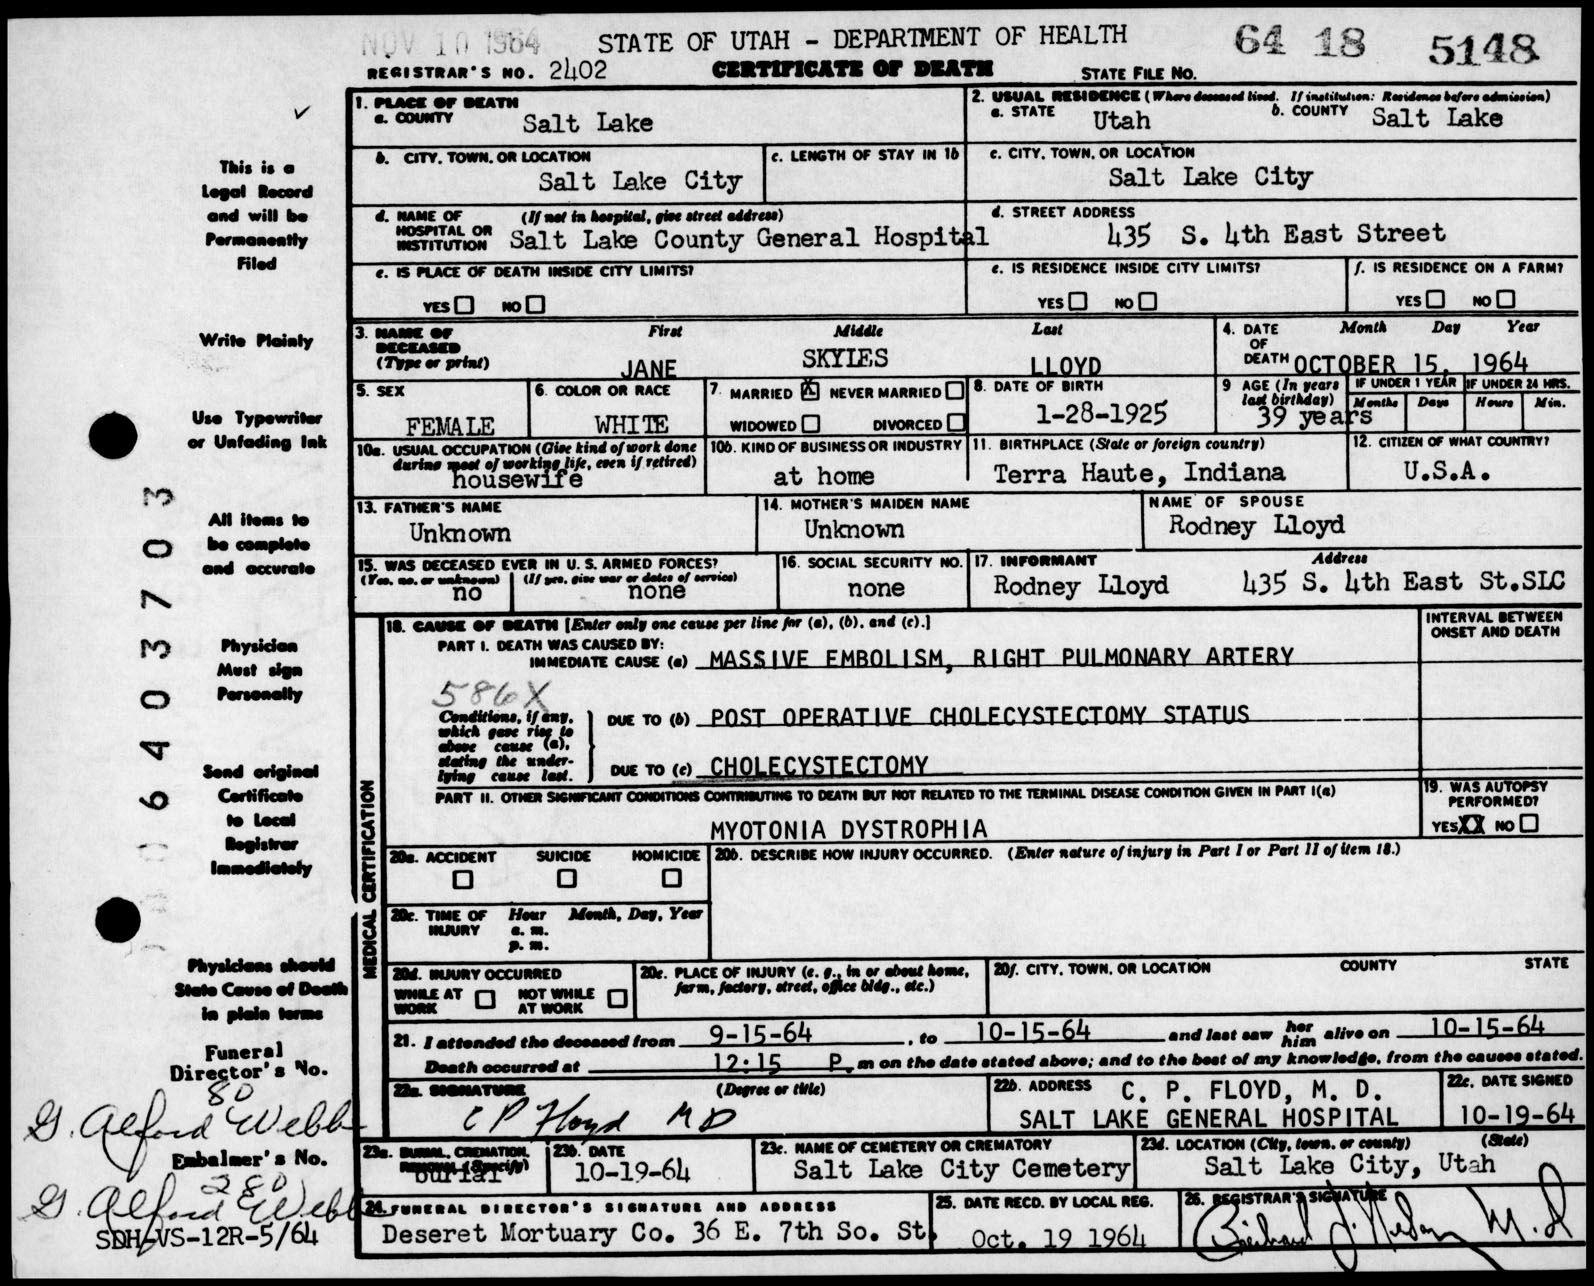 NOV 10 1964 STATE OF UTAH - DEPARTMENT OF HEALTH 64 18 5148
REGISTRAR'S NO. 2402 CERTIFICATE OF DEATH STATE FILE NO.
This is a
Legal Record
and will be
Permanently
Filed
Write Plainly
Use Typewriter
or Unfading Ink
All items to
be complete
and accurate
Physician
Must sign
Personally
Send original
Certificate
to Local
Registrar
Immediately
Physicians should
State Cause of Death
in plain terms
Funeral
Director's No.
80
G. Alford Webb
Embalmer's No.
280
G. Alford Webb
SDH-VS-12R-5/64
0064037703
1. PLACE OF DEATH
a. COUNTY Salt Lake
2. USUAL RESIDENCE (Where deceased lived. If institution: Residence before admission)
a. STATE Utah b. COUNTY Salt Lake
b. CITY, TOWN, OR LOCATION Salt Lake City
c. LENGTH OF STAY IN 1b
c. CITY, TOWN, OR LOCATION
Salt Lake City
d. NAME OF (If not in hospital, give street address)
HOSPITAL OR
INSTITUTION Salt Lake County General Hospital
d. STREET ADDRESS
435 S. 4th East Street
e. IS PLACE OF DEATH INSIDE CITY LIMITS?
YES NO
e. IS RESIDENCE INSIDE CITY LIMITS?
YES NO
f. IS RESIDENCE ON A FARM?
YES NO
3. NAME OF First Middle Last
DECEASED
(Type or print) JANE SKYLES LLOYD
4. DATE Month Day Year
OF
DEATH OCTOBER 15, 1964
5. SEX
FEMALE
6. COLOR OR RACE
WHITE
7. MARRIED X NEVER MARRIED
WIDOWED DIVORCED
8. DATE OF BIRTH
1-28-1925
9 AGE (In years
last birthday)
39 years
IF UNDER 1 YEAR IF UNDER 24 HRS.
Months Days Hours Min.
10a. USUAL OCCUPATION (Give kind of work done
during most of working life, even if retired)
housewife
10b. KIND OF BUSINESS OR INDUSTRY
at home
11. BIRTHPLACE (State or foreign country)
Terra Haute, Indiana
12. CITIZEN OF WHAT COUNTRY?
U.S.A.
13. FATHER'S NAME
Unknown
14. MOTHER'S MAIDEN NAME
Unknown
NAME OF SPOUSE
Rodney Lloyd
15. WAS DECEASED EVER IN U. S. ARMED FORCES?
(Yes, no, or unknown) (If yes, give war or dates of service)
no none
16. SOCIAL SECURITY NO.
none
17. INFORMANT Address
Rodney Lloyd 435 S. 4th East St.SLC
MEDICAL CERTIFICATION
18. CAUSE OF DEATH [Enter only one cause per line for (a), (b), and (c).]
INTERVAL BETWEEN
ONSET AND DEATH
PART I. DEATH WAS CAUSED BY:
IMMEDIATE CAUSE (a) MASSIVE EMBOLISM, RIGHT PULMONARY ARTERY
586X
Conditions, if any,
which gave rise to
above cause (a),
stating the under-
lying cause last.
DUE TO (b) POST OPERATIVE CHOLECYSTECTOMY STATUS
DUE TO (c) CHOLECYSTECTOMY
PART II. OTHER SIGNIFICANT CONDITIONS CONTRIBUTING TO DEATH BUT NOT RELATED TO THE TERMINAL DISEASE CONDITION GIVEN IN PART I(a)
MYOTONIA DYSTROPHIA
19. WAS AUTOPSY
PERFORMED?
YES XX NO
20a. ACCIDENT SUICIDE HOMICIDE
20b. DESCRIBE HOW INJURY OCCURRED. (Enter nature of injury in Part I or Part II of item 18.)
20c. TIME OF Hour Month, Day, Year
INJURY a. m.
p. m.
20d. INJURY OCCURRED
WHILE AT NOT WHILE
WORK AT WORK
20e. PLACE OF INJURY (e. g., in or about home,
farm, factory, street, office bldg., etc.)
20f. CITY, TOWN, OR LOCATION COUNTY STATE
21. I attended the deceased from 9-15-64, to 10-15-64 and last saw her him alive on 10-15-64
Death occurred at 12:15 P.m on the date stated above; and to the best of my knowledge, from the causes stated.
22a. SIGNATURE (Degree or title)
C P Floyd MD
22b. ADDRESS C. P. FLOYD, M. D.
SALT LAKE GENERAL HOSPITAL
22c. DATE SIGNED
10-19-64
23a. BURIAL, CREMATION,
REMOVAL (Specify)
burial
23b. DATE
10-19-64
23c. NAME OF CEMETERY OR CREMATORY
Salt Lake City Cemetery
23d. LOCATION (City, town, or county) (State)
Salt Lake City, Utah
24. FUNERAL DIRECTOR'S SIGNATURE AND ADDRESS
Deseret Mortuary Co. 36 E. 7th So. St.
25. DATE RECD. BY LOCAL REG.
Oct. 19 1964
26. REGISTRAR'S SIGNATURE
M.D